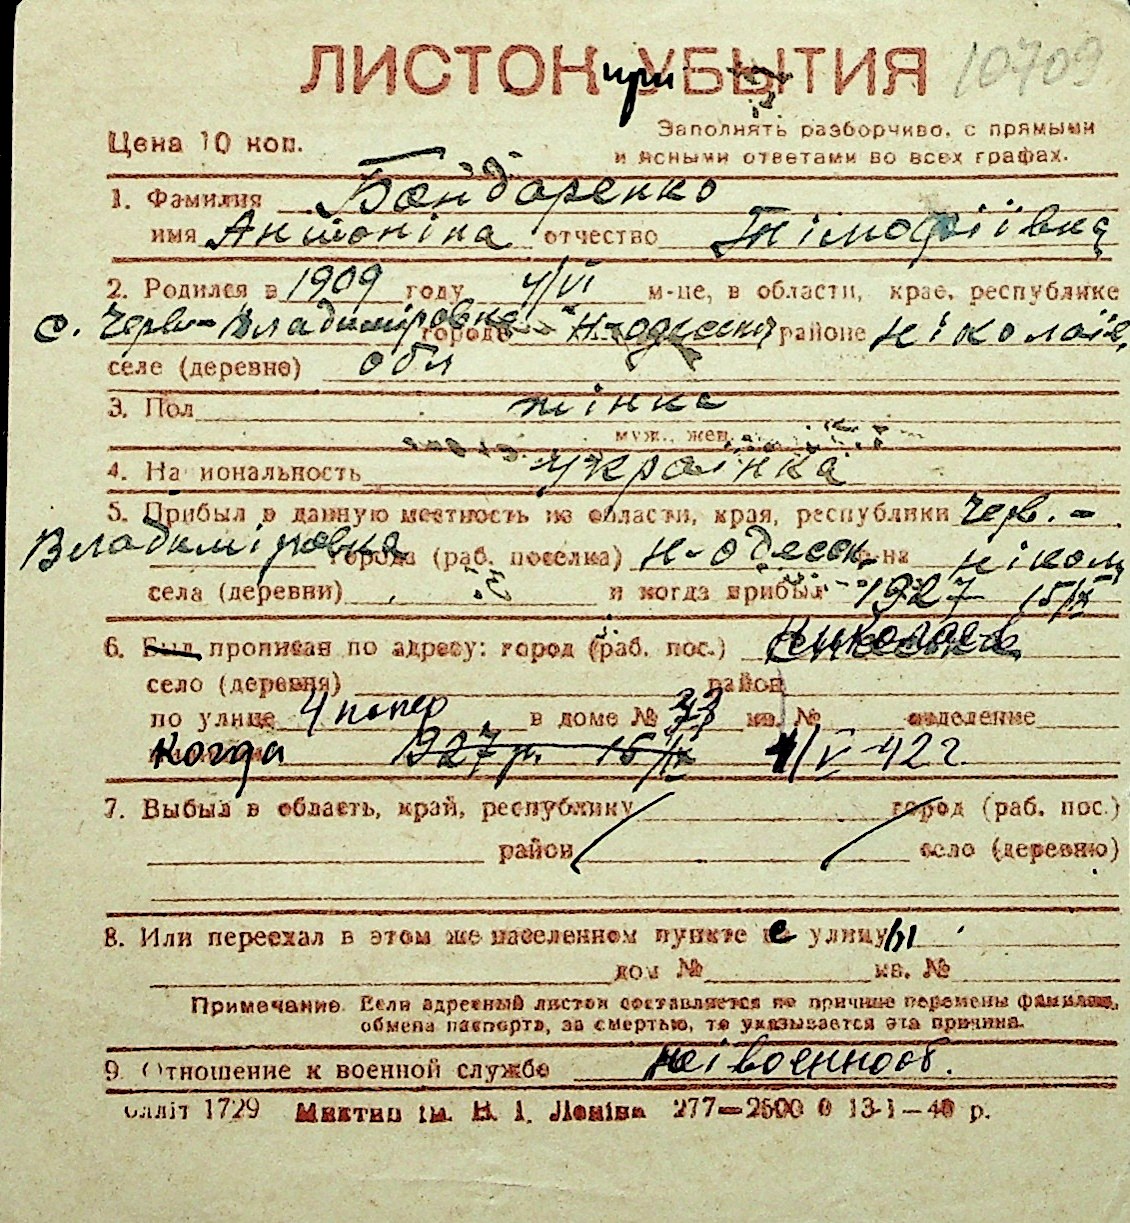 ЛИСТОК при УБЫТИЯ 10709
Цена 10 коп.
Заполнять разборчиво, с прямыми
и ясными ответами во всех графах.
1. Фамилия Бондаренко
имя Антоніна отчество Тімофіївна
2. Родился в 1909 году 4/VI м-це, в области, крае, республике
с. Черв.-Владиміровка городе Н-одеськ районе Ніколаїв.
селе (деревне) обл
3. Пол жінка
муж., жен.
4. На иональность українка
5. Прибыл в данную местность из области, края, республики Черв.-
Владиміровка города (раб. поселка) Н-одеськ. р-на Нікол.
села (деревни) и когда прибыл 1927 15/IX
6. Был прописан по адресу: город (раб. пос.) Николаев
село (деревня) район
по улице 4 попер в доме № 33 кв. № отделение
когда 1927 р. 15/IX 1/V-42 г.
7. Выбыл в область, край, республику город (раб. пос.)
район село (деревню)
8. Или переехал в этом же населенном пункте с улицы
дом № кв. №
Примечание. Если адресный листок составляется по причине перемены фамилии,
обмена паспорта, за смертью, то указывается эта причина.
9. Отношение к военной службе неівоеннооб.
блліт 1729 Миктип ім. В. І. Леніна 277—2500 0 13-1—40 р.